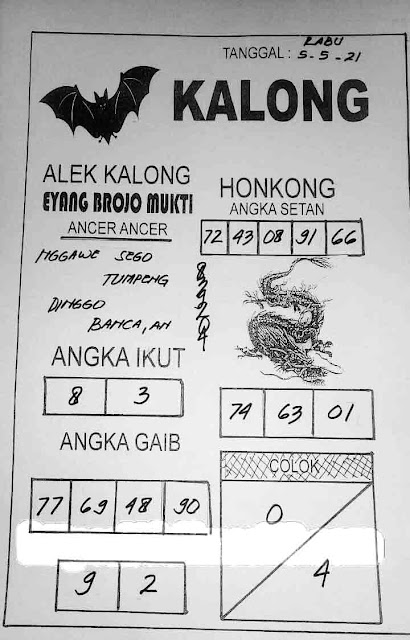 RABU
TANGGAL : 5-5-21
KALONG
ALEK KALONG
EYANG BROJO MUKTI
ANCER ANCER
NGGAWE SEGO
TUMPENG
DINGGO
BANCA,AN
ANGKA IKUT
8 3
ANGKA GAIB
77 69 48 90
9 2
HONKONG
ANGKA SETAN
72 43 08 91 66
74 63 01
COLOK
0
4